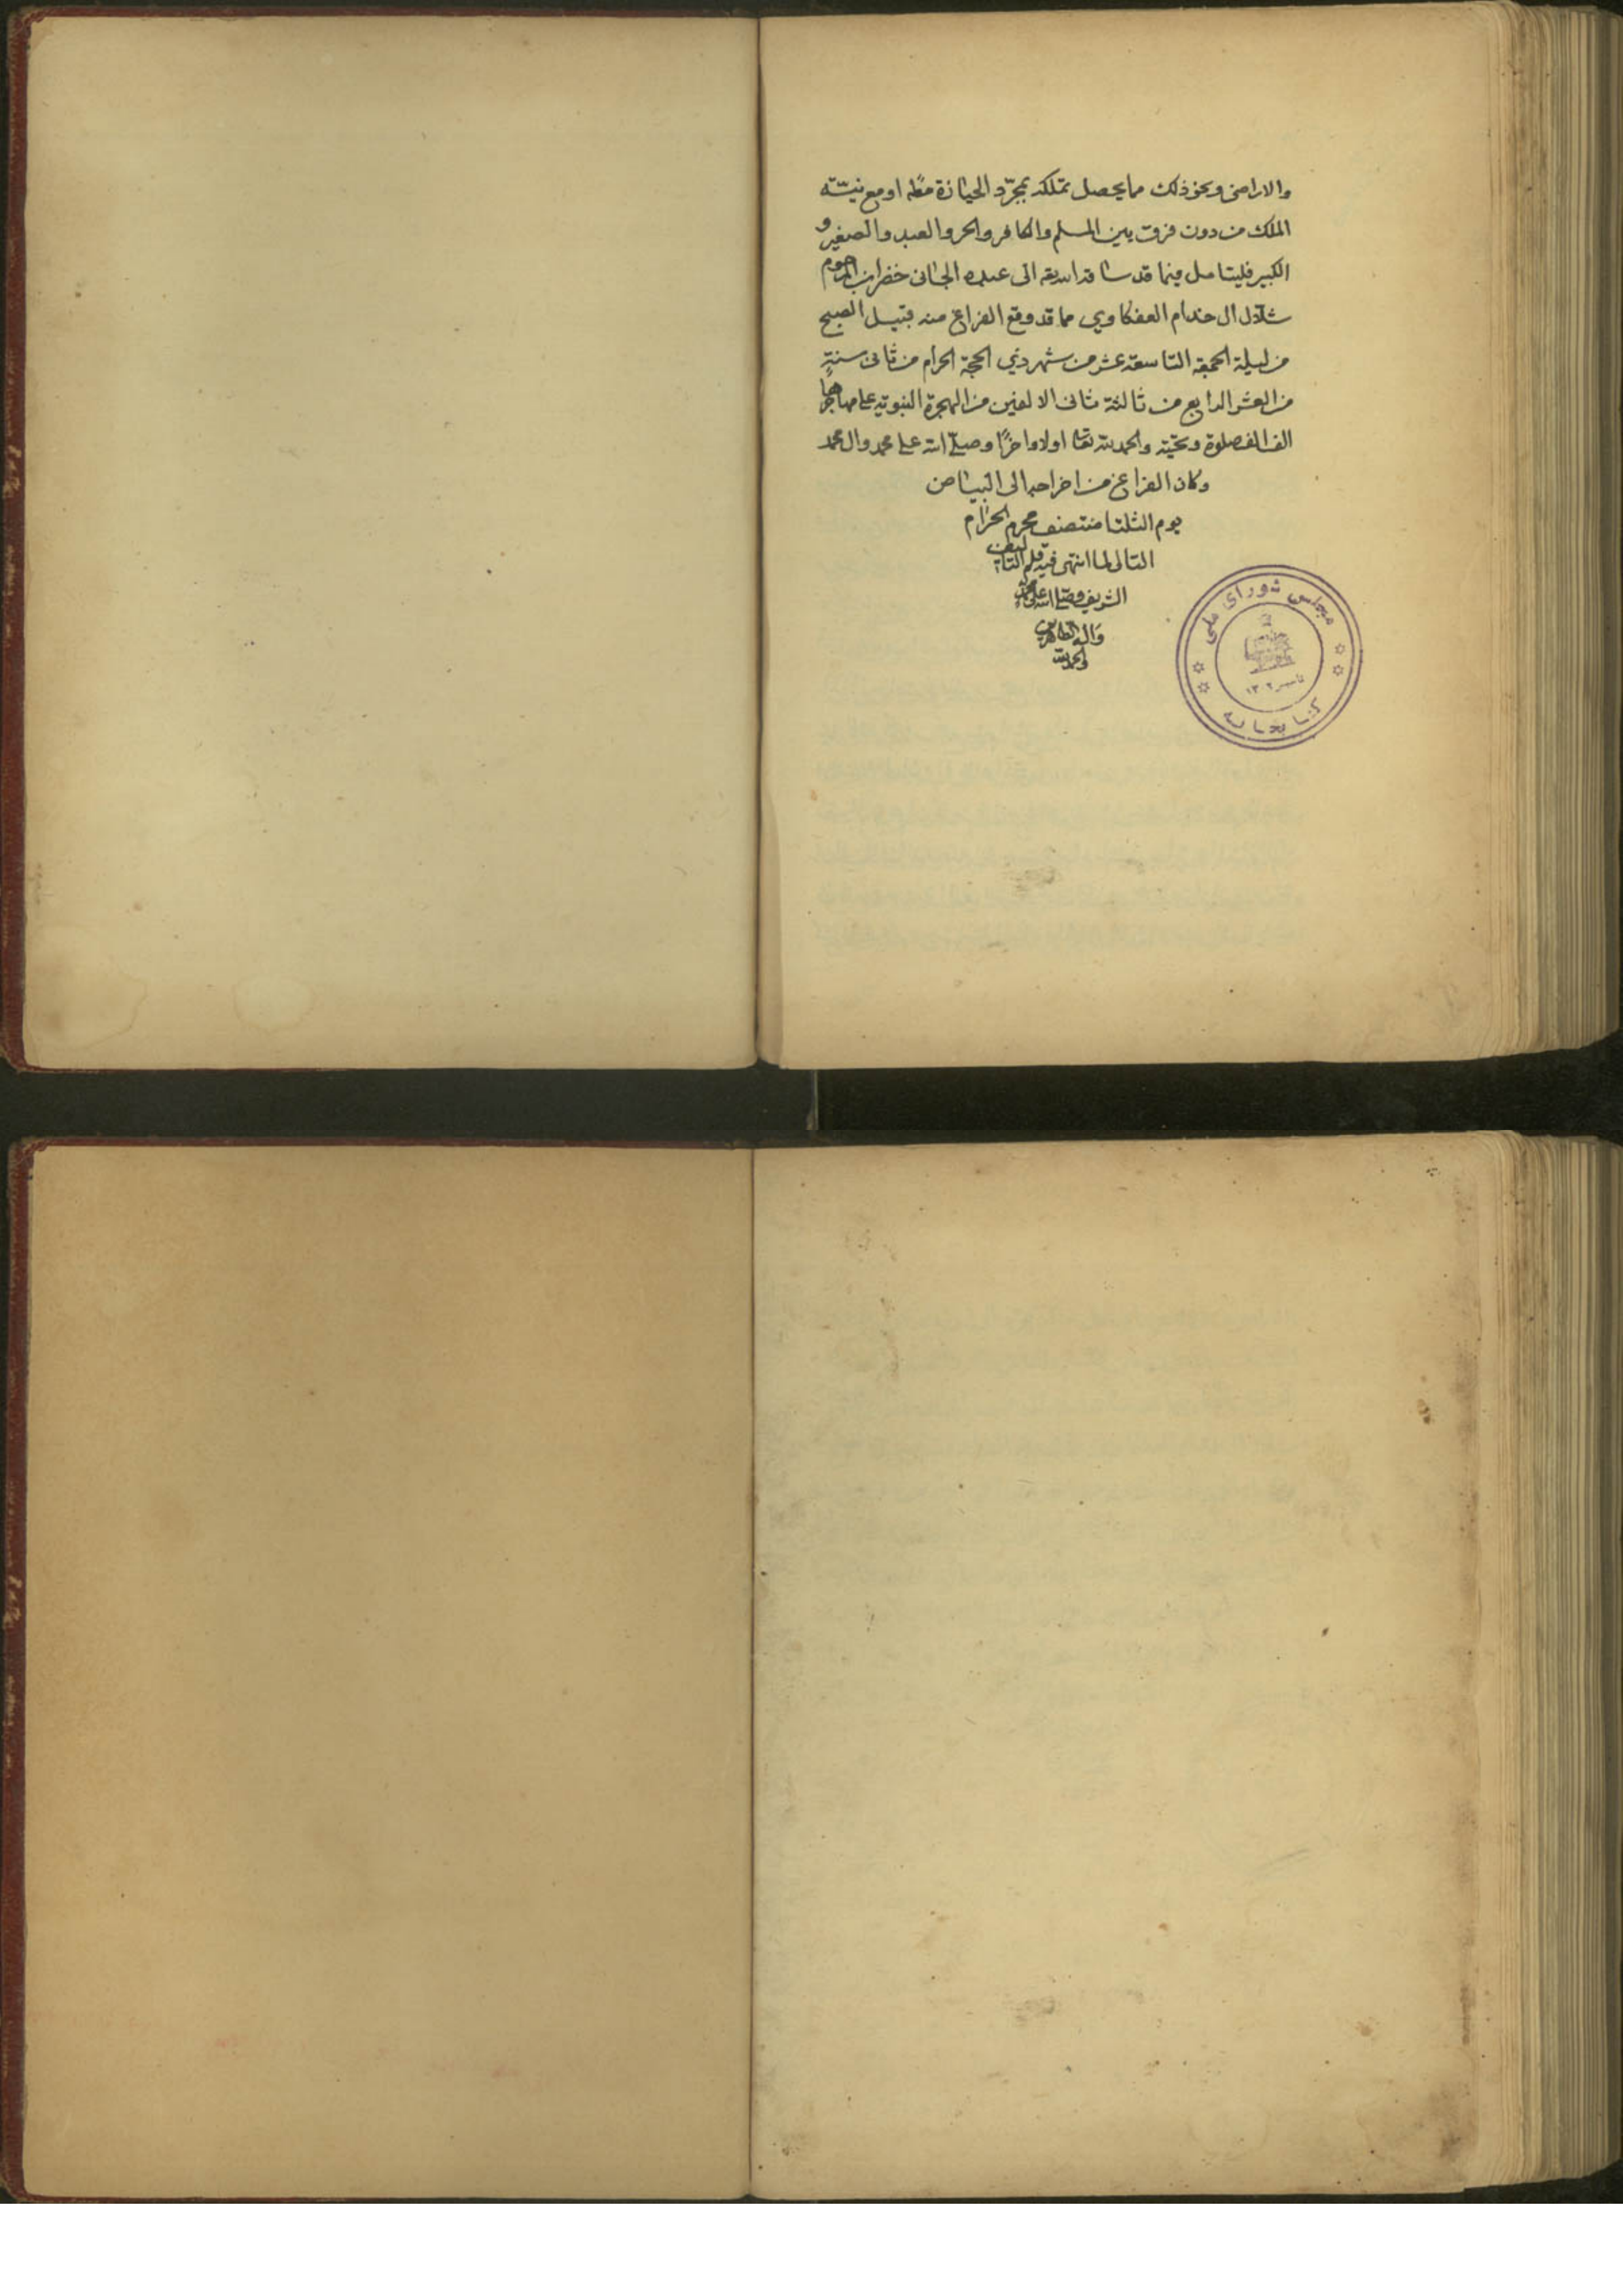 والاراضى ونحو ذلك مما يحصل تملكه بمجرّد الحيازة مطه او مع نيّته
الملك من دون فرق بين المسلم والكافر والحر والعبد والصغير و
الكبير فليتامل فيما قد ساقه الله الى عبده الجانى خضر ابن المرحوم
شلال ال خدام العفكاوي مما قد وقع الفراغ منه قبيل الصبح
من ليلة الجمعة التاسعة عشر من شهر ذي الحجة الحرام من ثانى سنة
من العشر الرابع من ثالثة ثانى الالفين من الهجرة النبوية على مهاجرها
الف الف صلوة وتحيّة والحمد لله تعا اولا واخرًا وصلى الله على محمد وال محمد
وكان الفراغ من اخراجه الى البياض
يوم الثلثا منتصف محرم الحرام
التالى لما انتهى فيه قلم التاليف
الشريف وصلى الله على محمد
واله الطاهرين
والحمد لله
مجلس شورای ملی
تأسیس ۱۳۰۲
کتابخانه